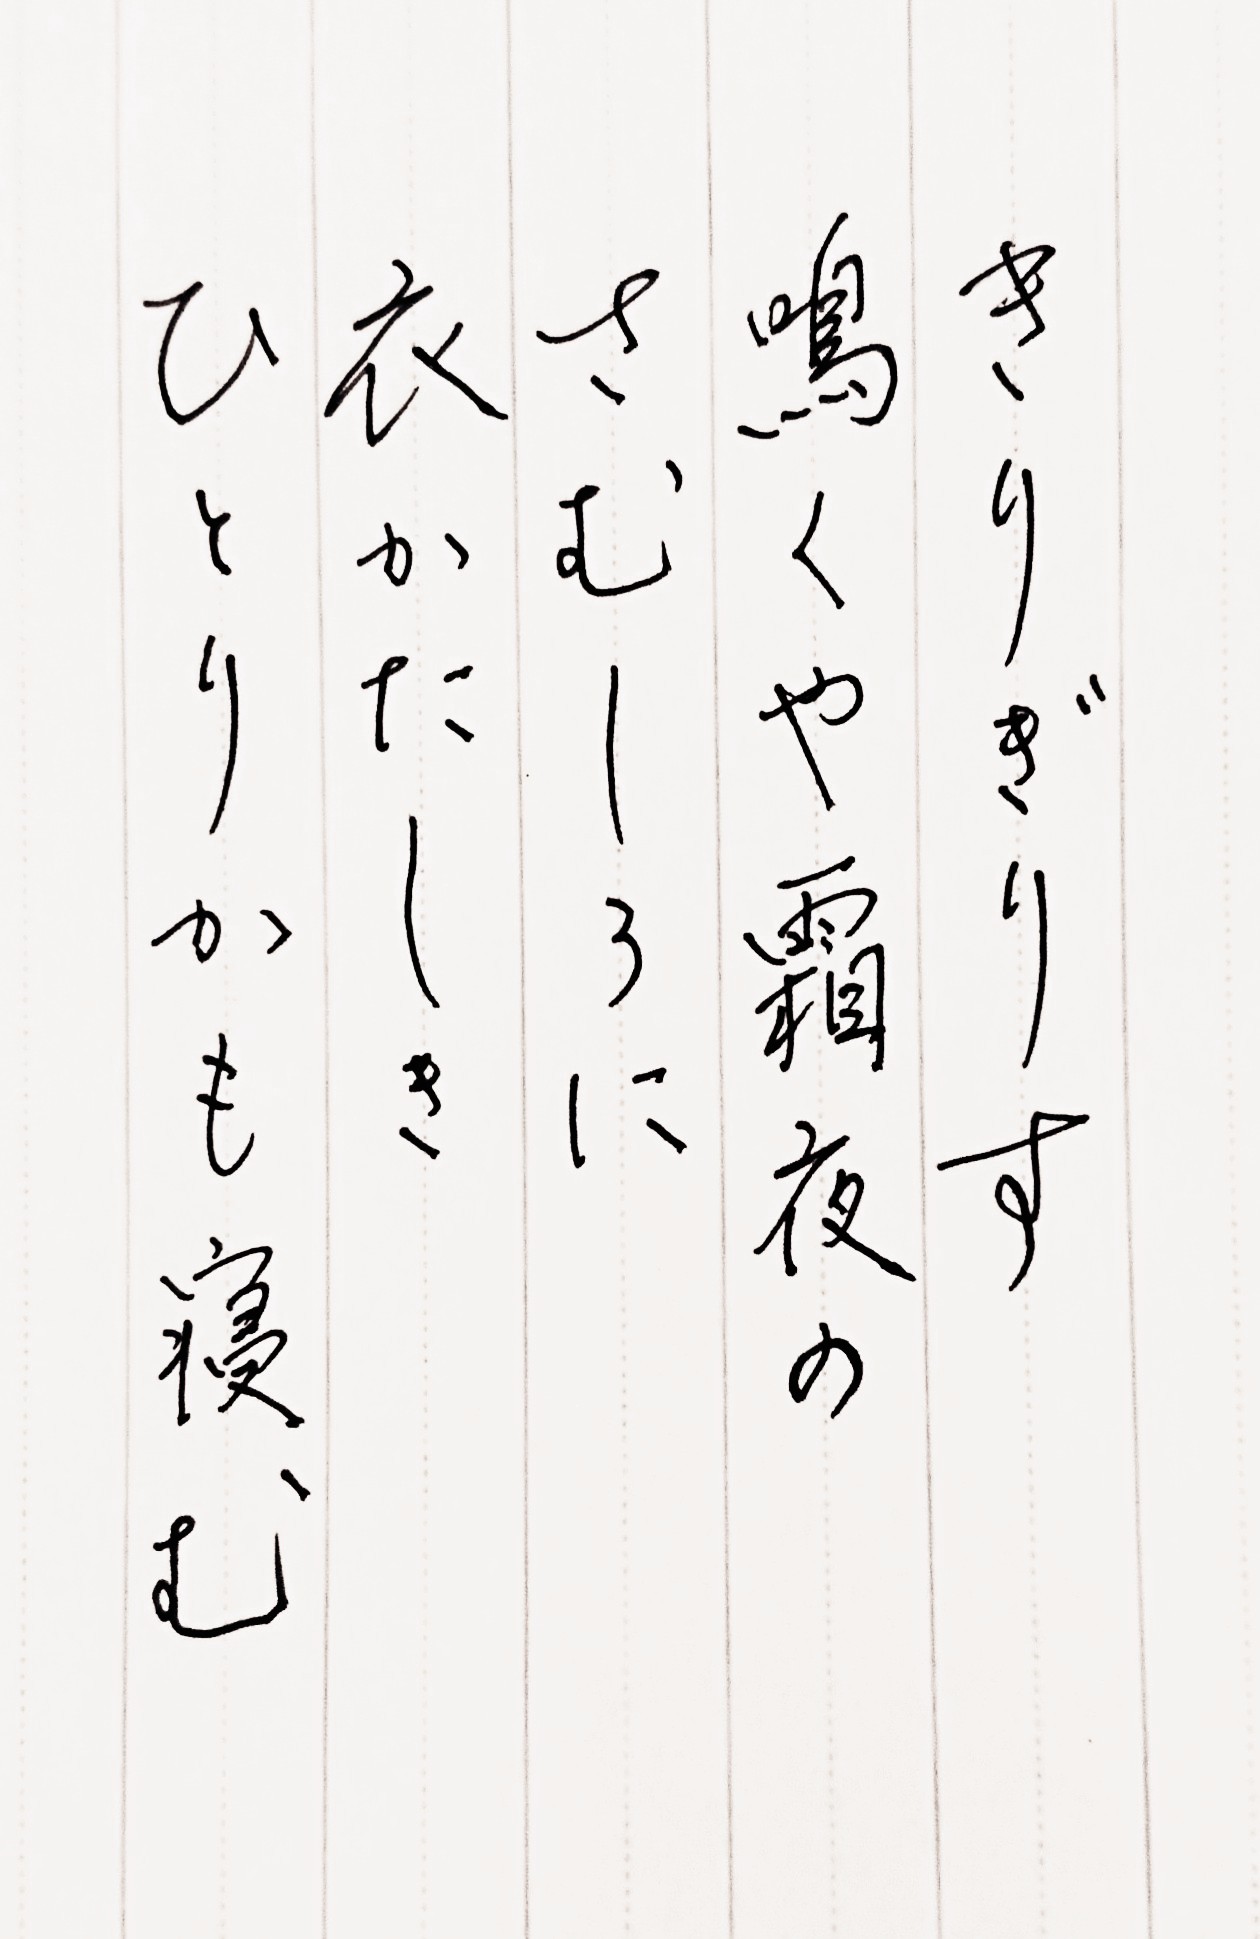 きりぎりす
鳴くや霜夜の
さむしろに
衣かたしき
ひとりかも寝む